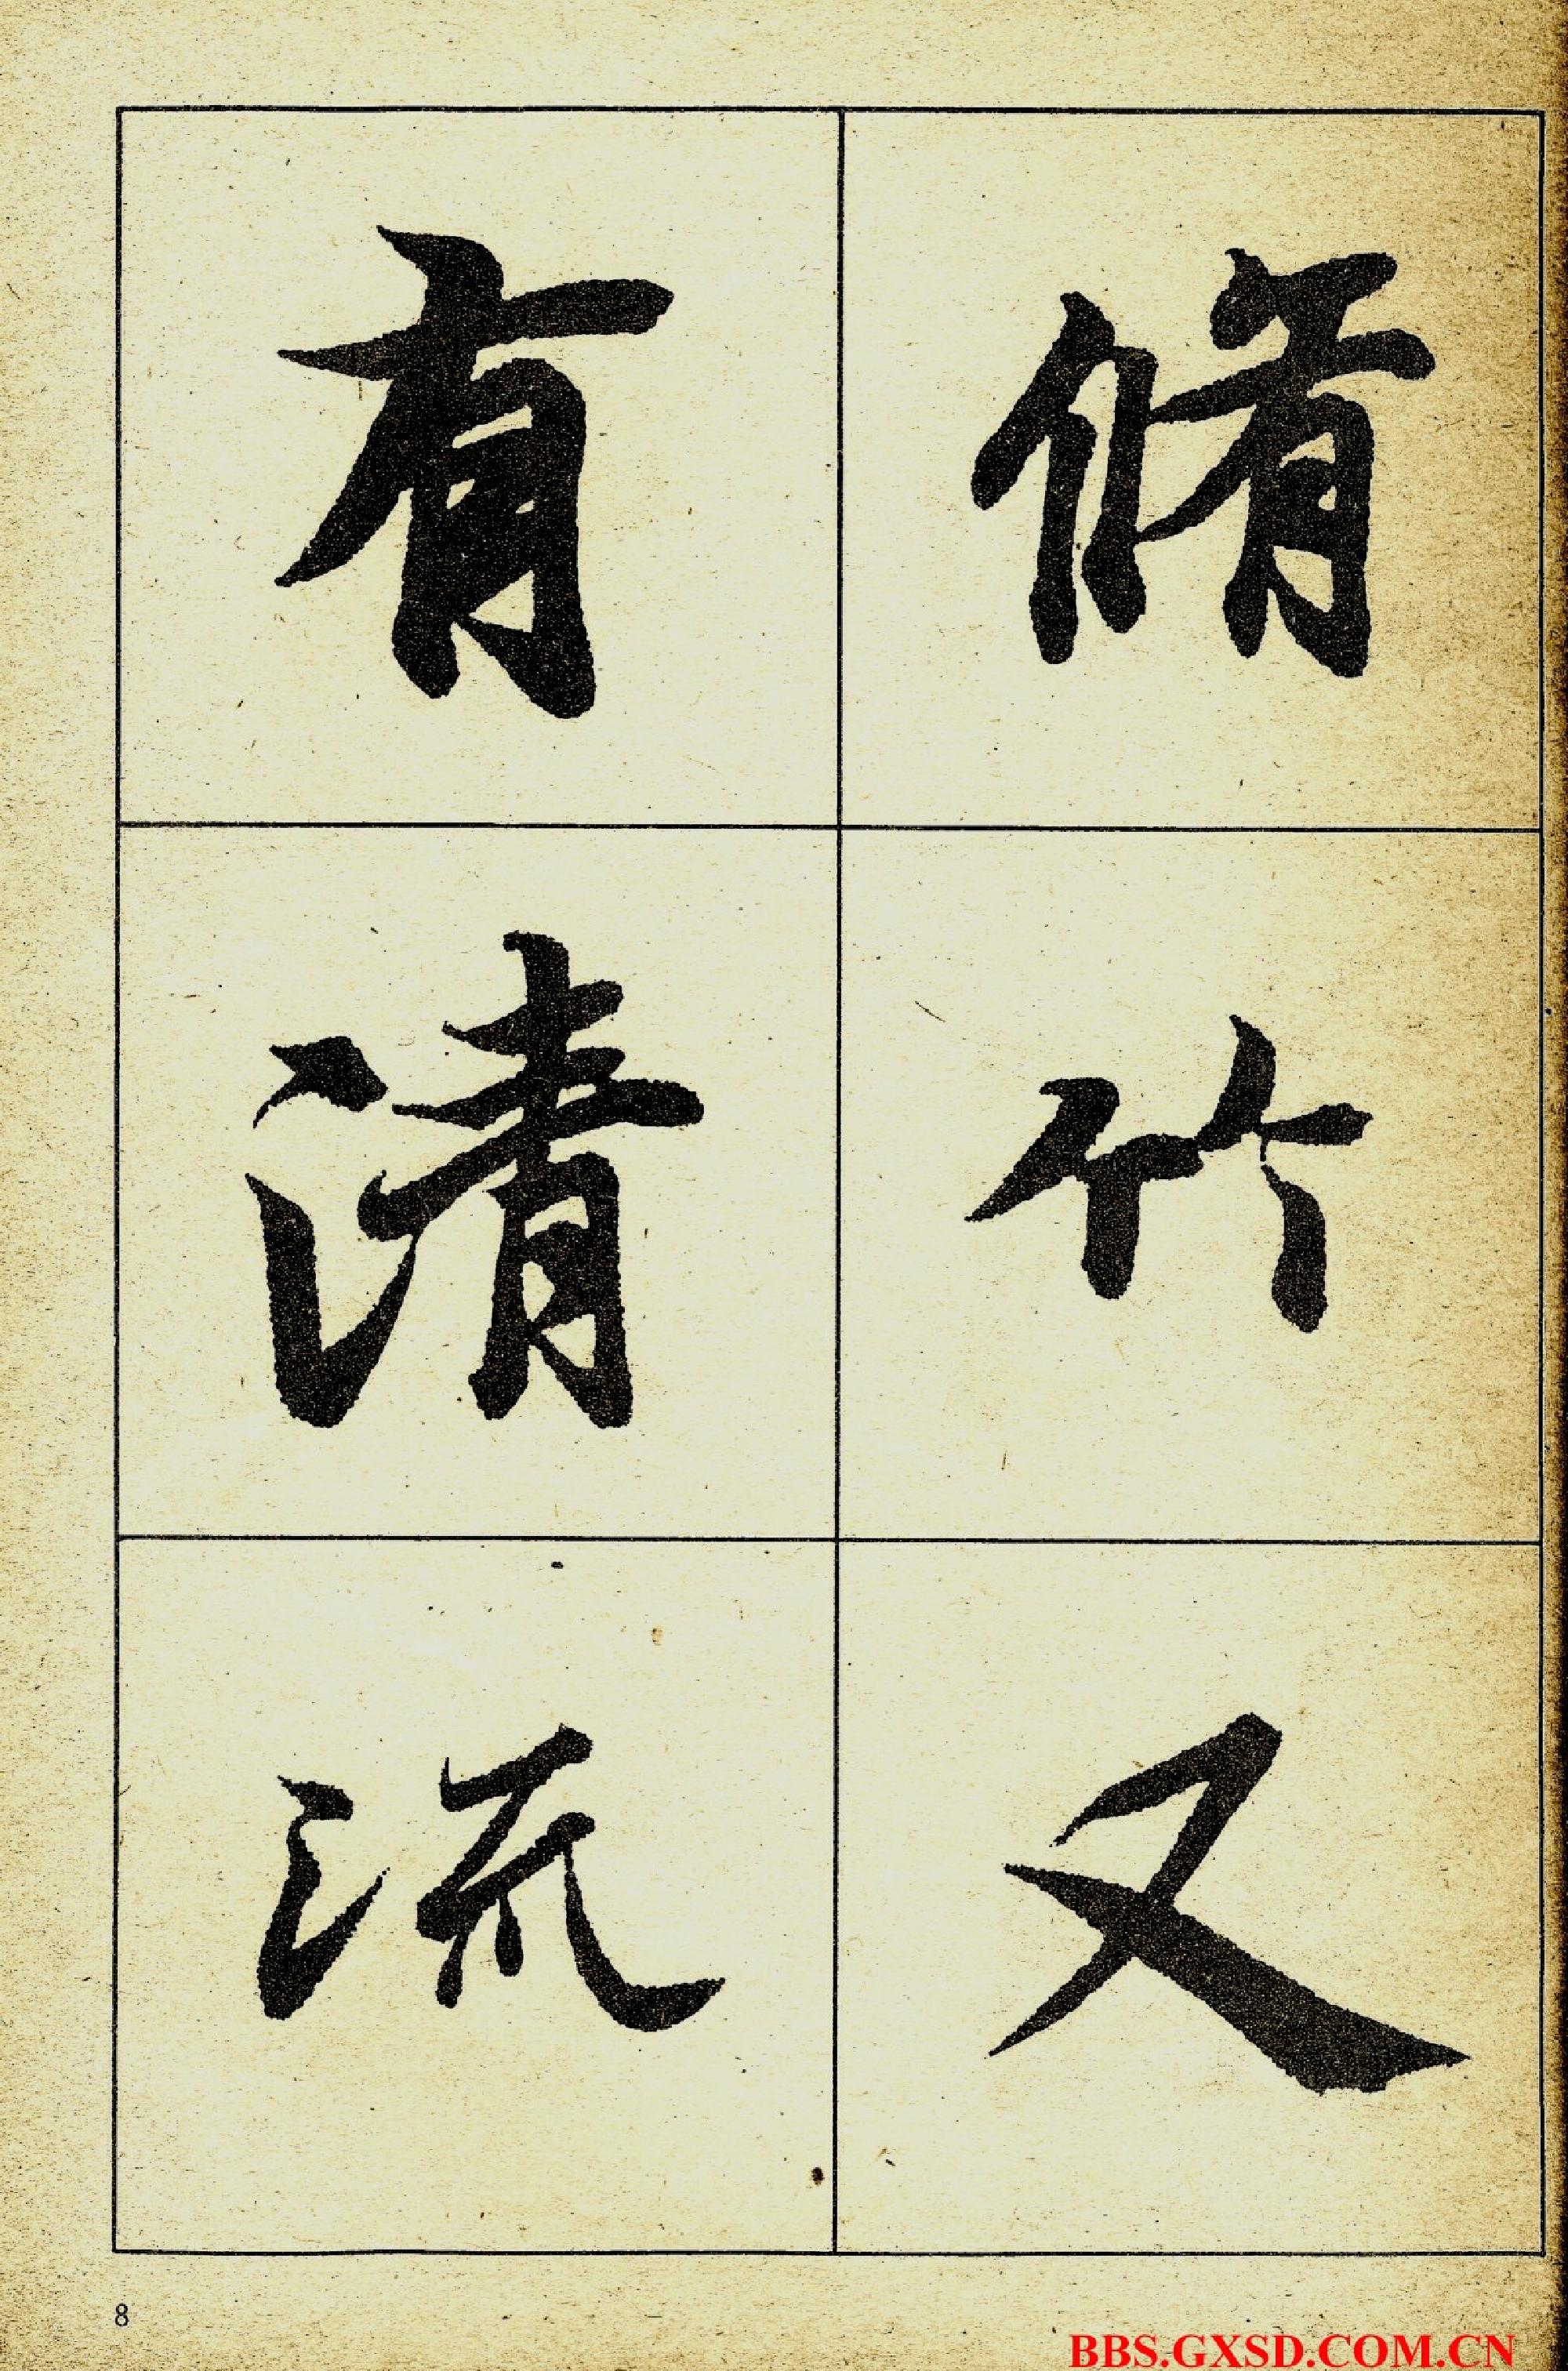 脩竹又
有清流
8
BBS.GXSD.COM.CN